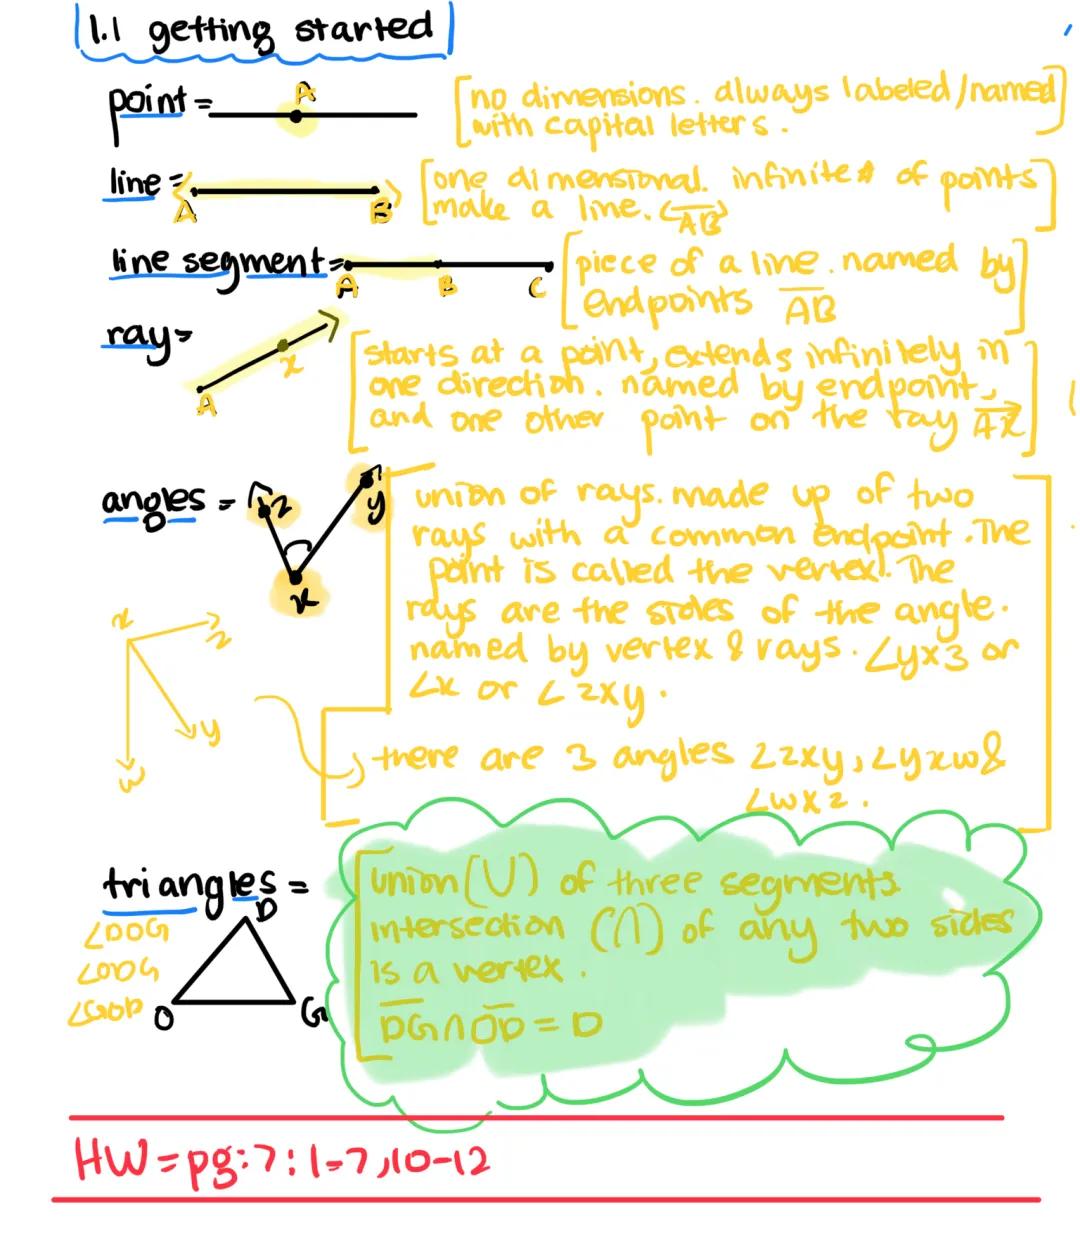 1.1 getting started
point =
A
[no dimensions. always labeled/named
with capital letters.]
line =
A B
[one dimensional. infinite # of points
make a line. AB]
line segment =
A B C
[piece of a line. named by
endpoints AB]
ray =
A x
[starts at a point, extends infinitely in
one direction. named by endpoint,
and one other point on the ray AX]
angles =
z y
x
union of rays. made up of two
rays with a common endpoint. The
point is called the vertex. The
rays are the sides of the angle.
named by vertex & rays. ∠yx3 or
∠x or ∠zxy.
x
z
y
w
there are 3 angles ∠zxy, ∠yxw &
∠wxz.
triangles =
D
O G
∠DOG
∠ODG
∠GOD
union (∪) of three segments
intersection (∩) of any two sides
is a vertex.
DG ∩ OD = D
HW = pg: 7: 1-7, 10-12